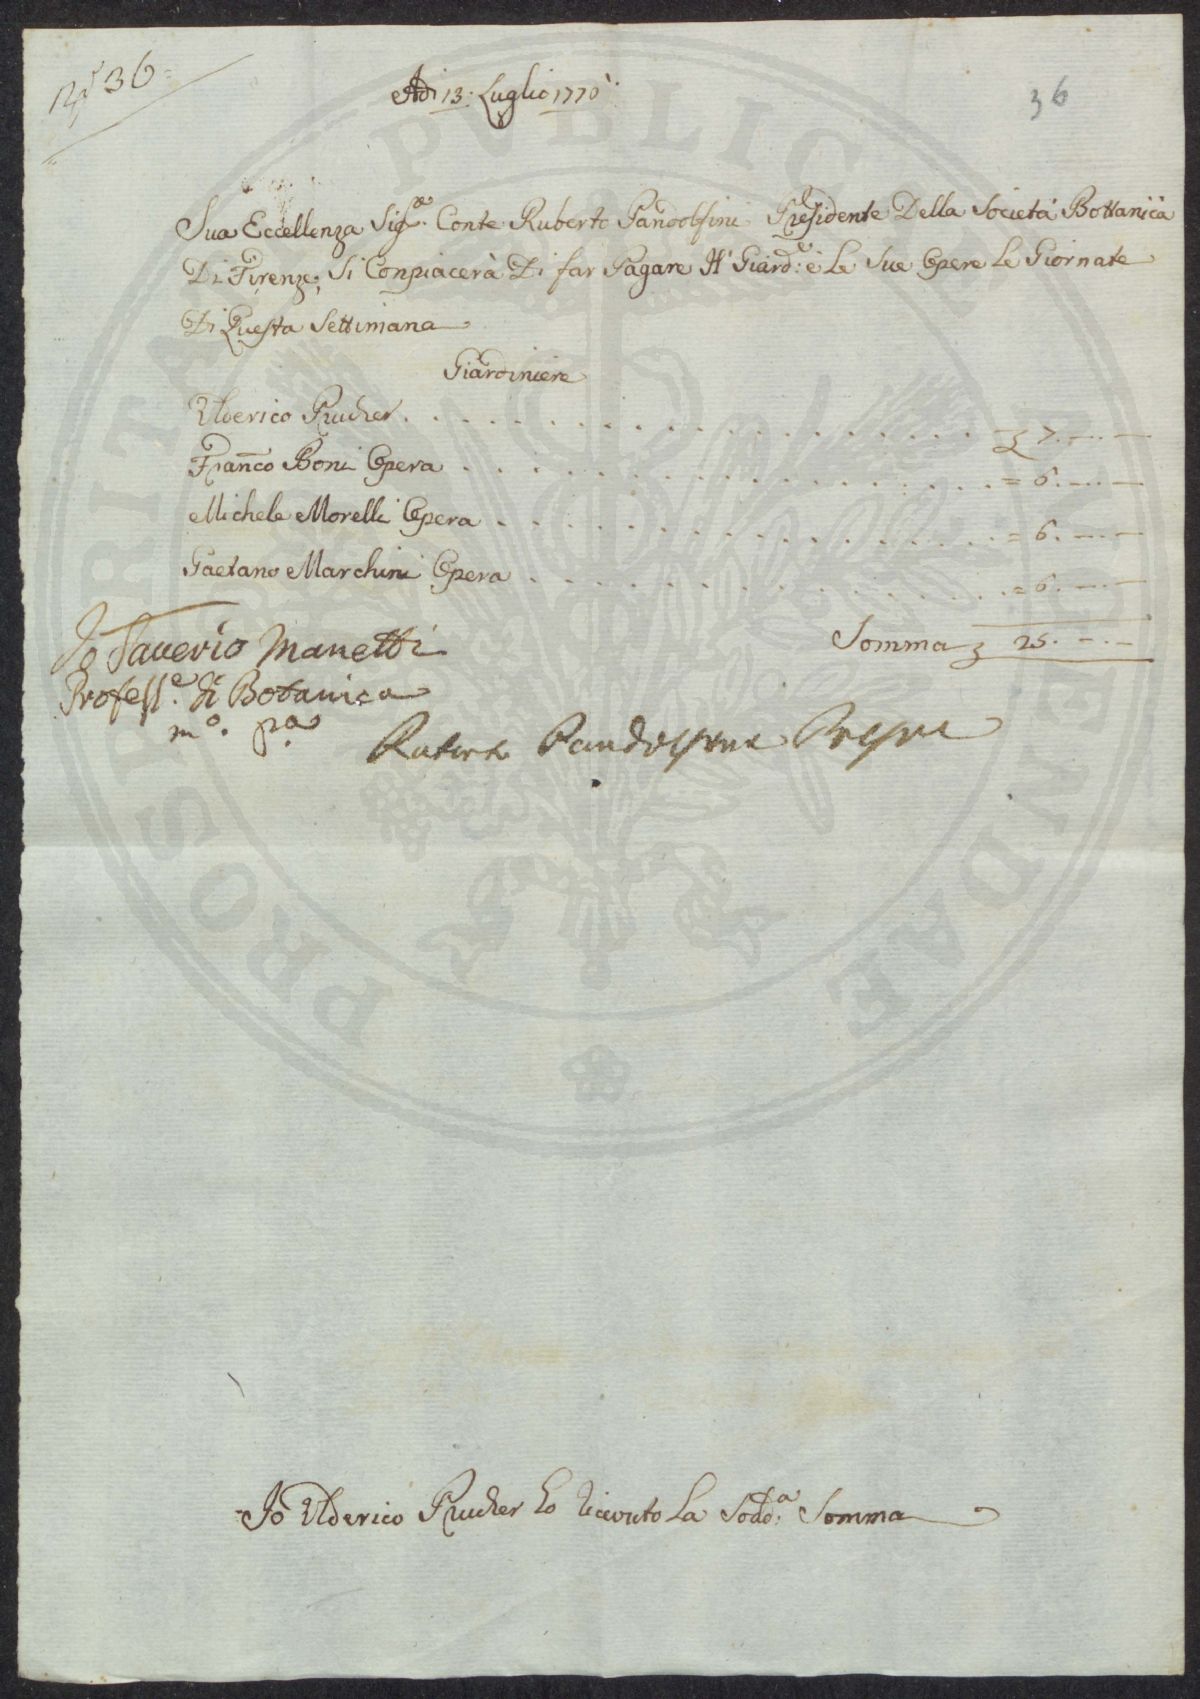 N.° 36
Adì 13: Luglio 1770
36
Sua Eccellenza Sig.re Conte Ruberto Pandolfini Presidente Della Società Bottanica
Di Firenze; Si Conpiacerà Di far Pagare Il' Giard:e è Le Sue Opere Le Giornate
Di Questa Settimana
Giardiniere
Ulderico Prucher . . . . . . . . . . . . . . . . £ 7. — . —
Franco Boni Opera . . . . . . . . . . . . . . . = 6. — . —
Michele Morelli Opera . . . . . . . . . . . . . . = 6. — . —
Gaetano Marchini Opera . . . . . . . . . . . . . = 6. — . —
Somma £ 25. — . —
Io Saverio Manetti
Profess.e di Botanica
m.o p.a
Ruberto Pandolfini
Io Ulderico Prucher ho riceuto La Sodd:a Somma
PROSPERITATI PVBLICAE AVGENDAE